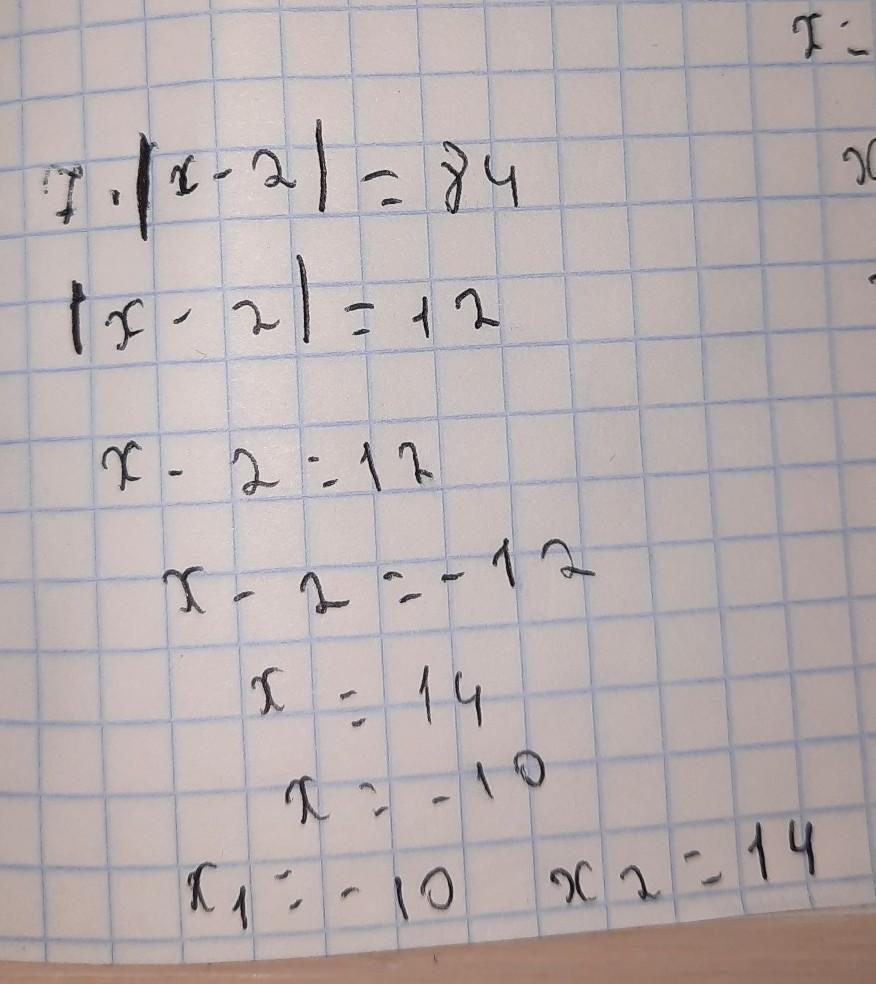 x=
7·|x-2|=84
|x-2|=12
x-2=12
x-2=-12
x=14
x=-10
x1=-10 x2=14